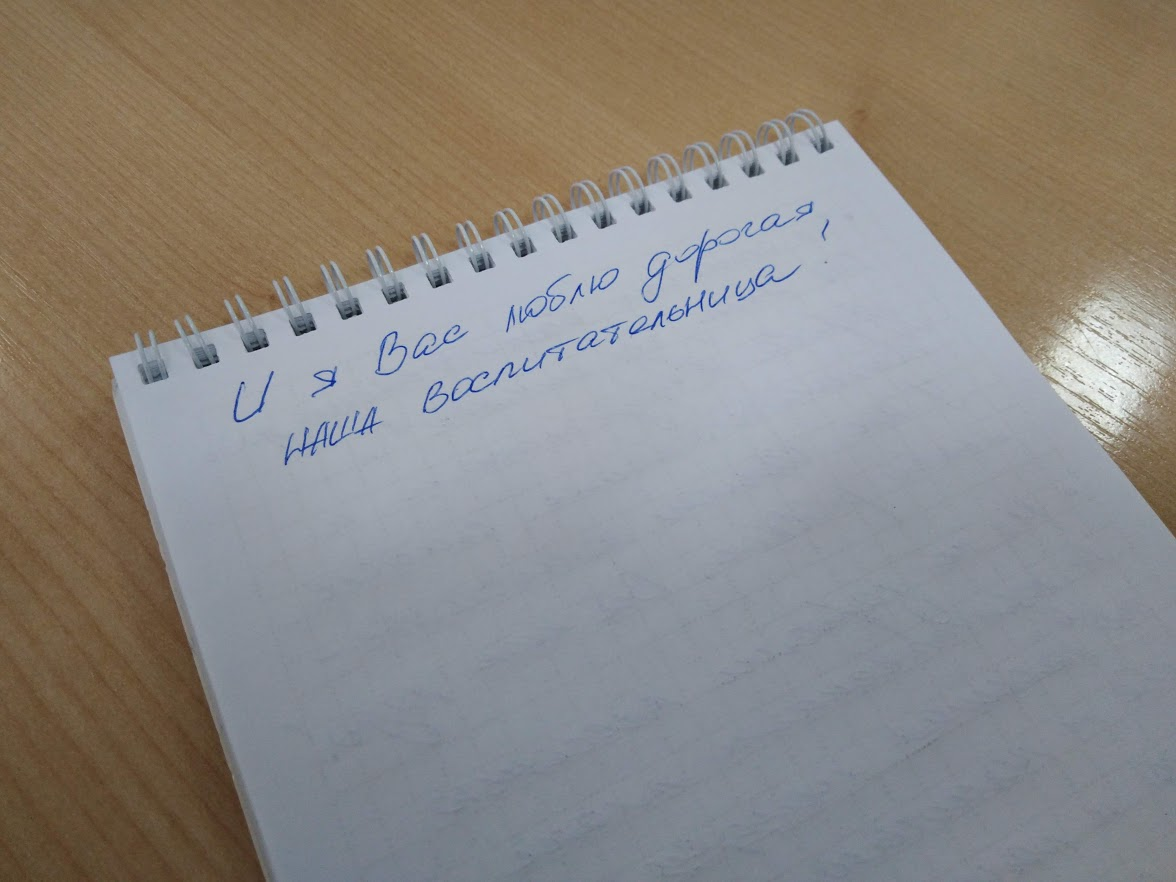 И я Вас люблю дорогая,
наша воспитательница!